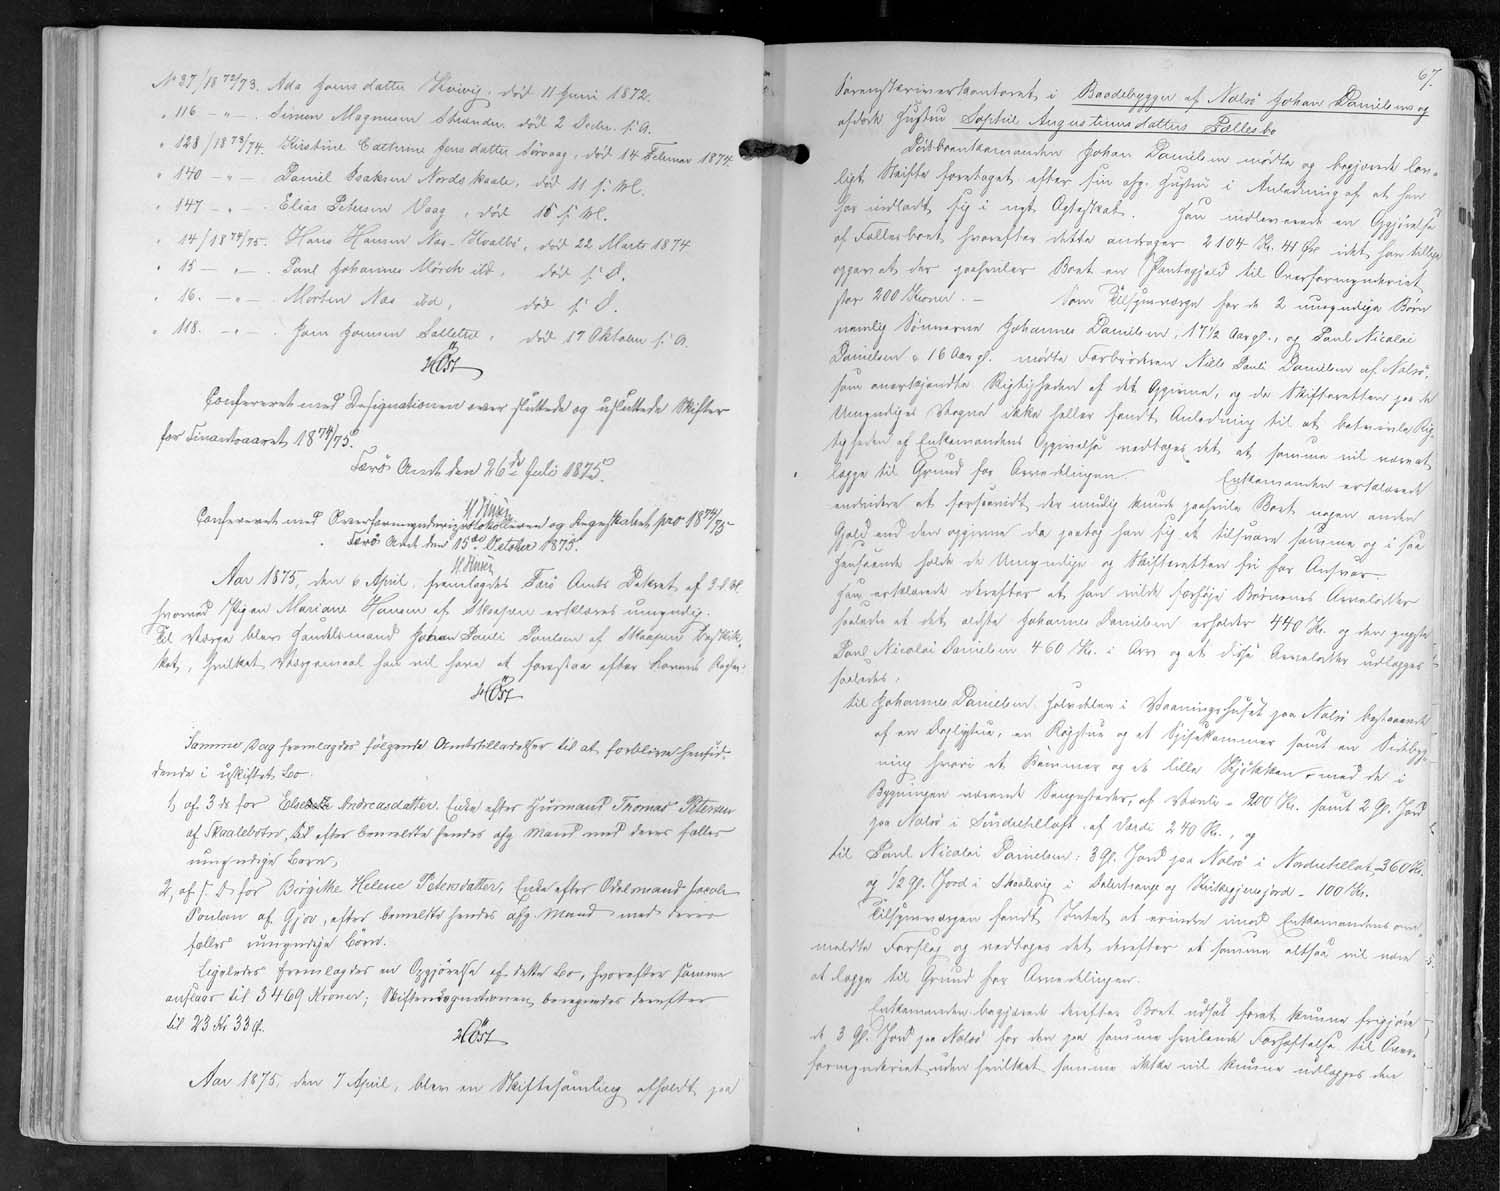 N° 37/1872/73. Ada Joensdatter Kvivig, død 11 Juni 1872.
" 116 - " - . Simon Magnussen Strænder, død 2 Decbr. s. A.
" 128/1873/74. Kirstine Cathrine Jensdatter Sørvaag, død 14 Februar 1874
" 140 - " - Daniel Isaksen Nordskaale, død 11 s. M.
" 147 - " - . Elias Petersen Vaag, død 16 s. M.
" 14/1874/75. Hans Hansen Næs-Hvalbø, død 22 Marts 1874.
" 15 - " - . Poul Johannes Mörch ibd, død s. D.
" 16. - " - . Morten Næs ibd, død s. D.
" 118. - " - . Joen Joensen Selletræ, død 17 Oktober s. A.
Höst
Confereret med Designationen over sluttede og usluttede Skifter
for Finantsaaret 1874/75.
Færø Amt den 26de Juli 1875.
H. Finsen
Confereret med Overformynderiprotokollen og Regnskabet pro 1874/75
Færø Amt den 15de October 1875.
H. Finsen
Aar 1875, den 6 April, fremlagdes Færø Amts Dekret af 3 d. M.
hvorved Pigen Mariane Hansen af Skaapen erklæres umyndig.
Til Værge blev Handelsmand Johan Pauli Poulsen af Skaapen beskik-
ket, hvilket Værgemaal han vil have at forestaae efter Lovens Regler.
Höst
Samme Dag fremlagdes følgende Amtstilladelser til at forblive hensid-
dende i uskiftet Bo:
1, af 3 ds for Else Andreasdatter, Enke efter Huusmand Thomas Petersen
af Skaalebotn, til efter bemeldte hendes afg. Mand med deres fælles
umyndige Børn,
2, af s. D. for Birgithe Helene Petersdatter, Enke efter Odelsmand Jacob
Poulsen af Gjov, efter bemeldte hendes afg. Mand med deres
fælles umyndige Børn.
Ligeledes fremlagdes en Opgjørelse af dette Bo, hvorefter samme
anslaaes til 3469 Kroner; Skifterecognitionen beregnedes derefter
til 23 Kr 33 Ø.
Höst
Aar 1875, den 7 April, blev en Skiftesamling afholdt paa
67.
Sorenskriverkontoret i Baadebygger af Nolsø Johan Danielsens og
afdøde Hustru Sophie Augustinusdatters Fællesbo
Dødsboenkemanden Johan Danielsen mødte og begjærede lov-
ligt Skifte foretaget efter sin afg. Hustru i Anledning af at han
har indladt sig i nyt Ægteskab. Han indleverede en Opgjørelse
af Fællesboet hvorefter dette andrager 2104 Kr. 41 Øre idet han tillige
opgav at der paahviler Boet en Pantegjæld til Overformynderiet
stor 200 Kroner. - Som Tilsynsværge for de 2 umyndige Børn
nemlig Sønnerne Johannes Danielsen, 17½ Aar gl., og Poul Nicolai
Danielsen, 16 Aar gl. mødte Farbroderen Niels Pauli Danielsen af Nolsø,
som anerkjendte Rigtigheden af det Opgivne, og da Skifteretten paa de
Umyndiges Vegne ikke heller fandt Anledning til at betvivle Rig-
tigheden af Enkemandens Opgivelse vedtoges det at samme vil være at
lægge til Grund for Arvedelingen. Enkemanden erklærede
endvidere at forsaavidt der mulig kunde paahvile Boet nogen anden
Gjæld end den opgivne da paatog han sig at tilsvare samme og i saa
Henseende holde de Umyndige og Skifteretten fri for Ansvar.
Han erklærede derefter at han vilde forhøje Børnenes Arvelodder
saaledes at det ældste Johannes Danielsen erholder 440 Kr. og den yngste
Poul Nicolai Danielsen 460 Kr. i Arv og at disse Arvelodder udlægges
saaledes:
til Johannes Danielsen: Halvdelen i Vaaningshuset paa Nolsø bestaaende
af en Daglystue, en Røgstue og et Spisekammer samt en Sidebyg-
ning hvori et Kammer og et lille Kjøkken, med de i
Bygningen værende Sengesteder, af Værdi - 200 Kr. samt 2 Gl. Jord
paa Nolsø i Sudurtillaft af Værdi 240 Kr., og
til Poul Nicolai Danielsen: 3 Gl. Jord paa Nolsø i Nordurtillat - 360 Kr.
og ½ Gl. Jord i Skaalevig i Dalertrange og Kirkegjerejord - 100 Kr.
Tilsynsværgen fandt Intet at erindre imod Enkemandens om-
meldte Forslag og vedtoges det derefter at samme altsaa vil være
at lægge til Grund for Arvedelingen.
Enkemanden begjærede derefter Boet udsat forat kunne frigjøre
de 3 Gl. Jord paa Nolsø for den paa samme hvilende Forhæftelse til Over-
formynderiet, uden hvilket samme ikke vil kunne udlægges den